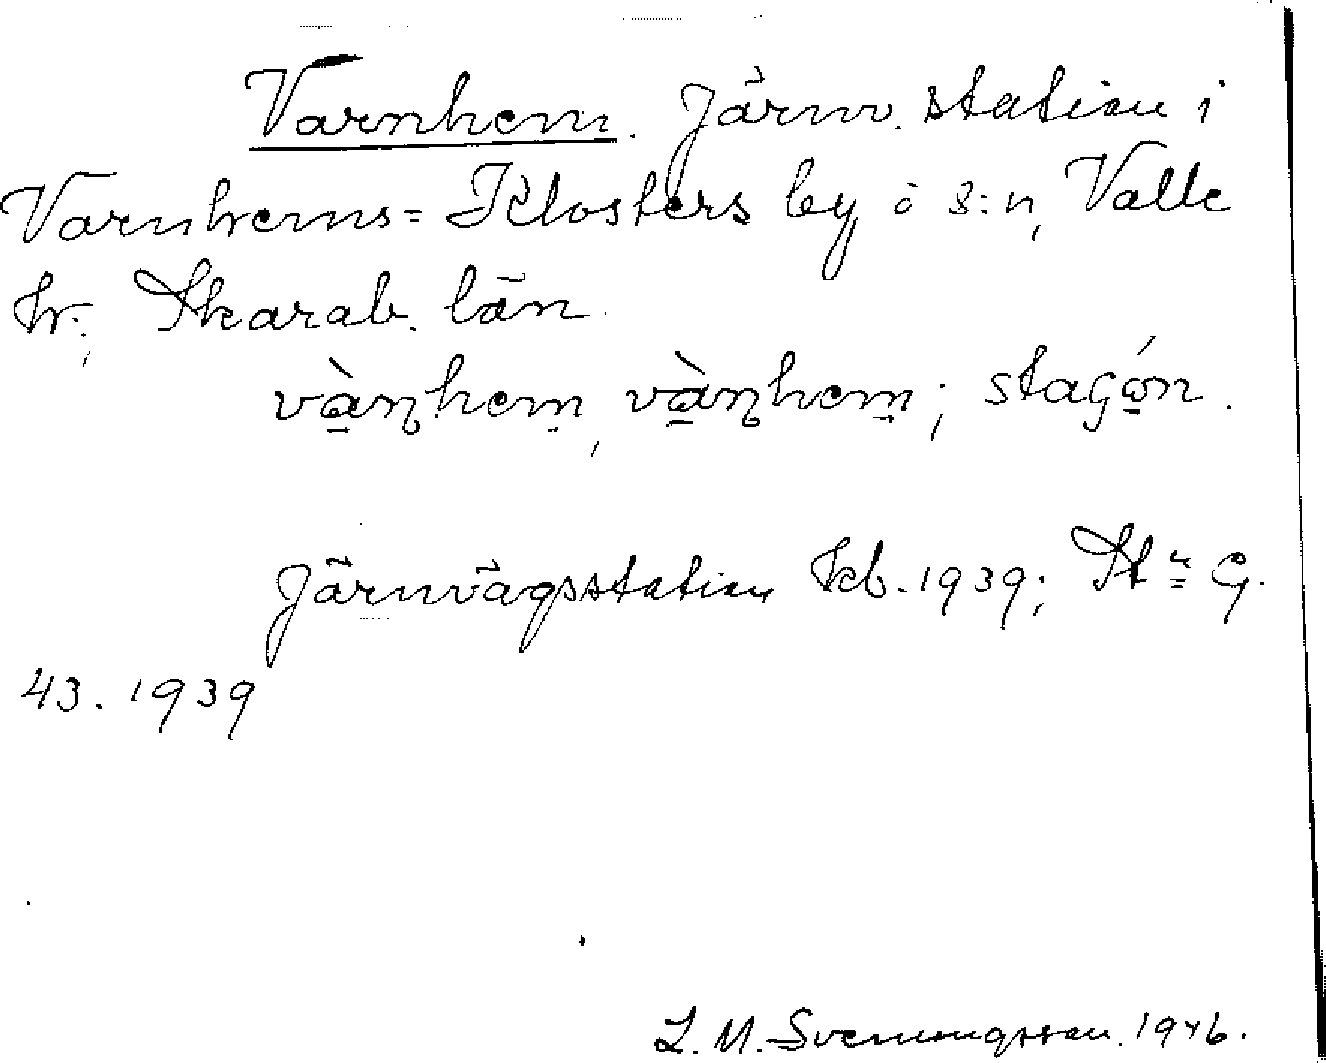 Varnhem. Järnv. station i
Varnhems-Klosters by i s:n, Valle
hr; Skarab. län.
vàn̥hem, vàn̥hem; stagón.
Järnvägsstation Jeb. 1939; St= G.
43. 1939
L. M. Svenungsson. 1946.